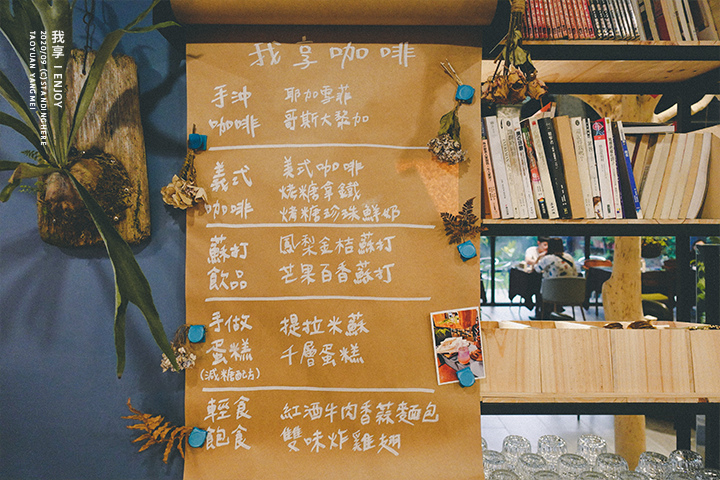 我享 | ENJOY
2020/09 (C)STANDINGHERE
TAOYUAN YANGMEI
我享咖啡
手沖 耶加雪菲
咖啡 哥斯大黎加
義式 美式咖啡
烤糖拿鐵
咖啡 烤糖珍珠鮮奶
蘇打 鳳梨金桔蘇打
飲品 芒果百香蘇打
手做 提拉米蘇
蛋糕 千層蛋糕
(減糖配方)
輕食 紅酒牛肉香蒜麵包
飽食 雙味炸雞翅